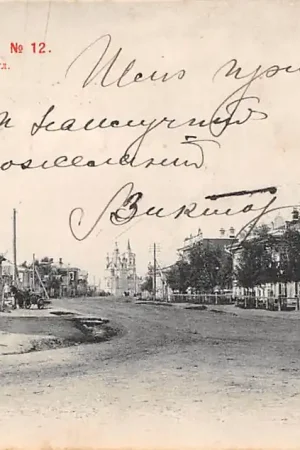 № 12.
Шлю при
и наилучший
пожеланий
Виктор